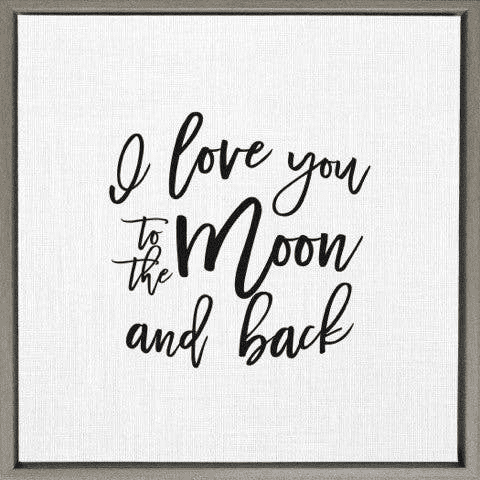 I love you
to
the Moon
and back